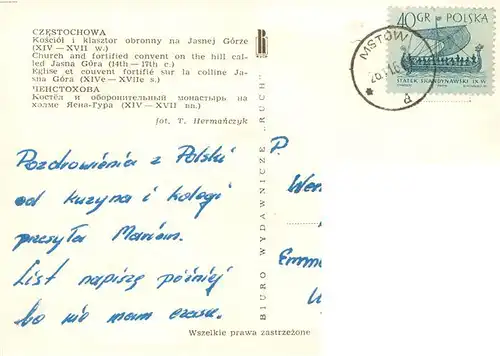 CZĘSTOCHOWA
Kościół i klasztor obronny na Jasnej Górze
(XIV — XVII w.)
Church and fortified convent on the hill cal-
led Jasna Góra (14th—17th c.)
Eglise et couvent fortifié sur la colline Ja-
sna Góra (XIVe—XVIIe s.)
ЧЕНСТОХОВА
Костёл и оборонительный монастырь на
холме Ясна-Гура (XIV—XVII вв.)
fot. T. Hermańczyk
Pozdrowienia z Polski
od kuzyna i kolegi
przesyła Marian.
List napiszę później
bo nie mam czasu.
Wszelkie prawa zastrzeżone
BIURO WYDAWNICZE „RUCH"
40 GR POLSKA
STATEK SKANDYNAWSKI IX W.
MSTÓW
P.